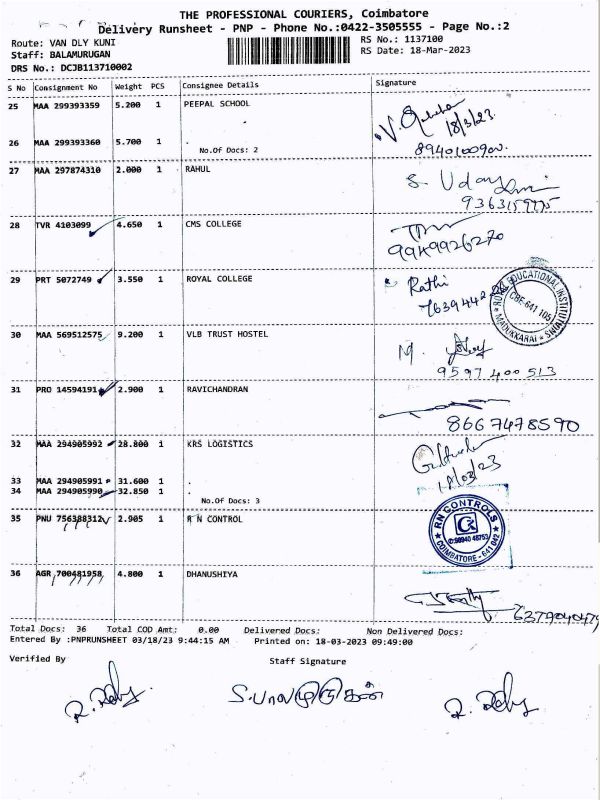 THE PROFESSIONAL COURIERS, Coimbatore
Delivery Runsheet - PNP - Phone No.:0422-3505555 - Page No.:2
Route: VAN DLY KUNI
RS No.: 1137100
Staff: BALAMURUGAN
RS Date: 18-Mar-2023
DRS No.: DCJB113710002
S No Consignment No Weight PCS Consignee Details Signature
25 MAA 299393359 5.200 1 PEEPAL SCHOOL
18/3/23
26 MAA 299393360 5.700 1 .
No.Of Docs: 2
8940100900
27 MAA 297874310 2.000 1 RAHUL
S. Uday
28 TVR 4103099 4.650 1 CMS COLLEGE
9949926270
29 PRT 5072749 3.550 1 ROYAL COLLEGE
Rathi
ROYAL EDUCATIONAL INSTITUTIONS
CBE-641 105
MADUKKARAI
30 MAA 569512575 9.200 1 VLB TRUST HOSTEL
M.
9597400513
31 PRO 14594191 2.900 1 RAVICHANDRAN
8667478590
32 MAA 294905992 28.800 1 KRS LOGISTICS
18/03/23
33 MAA 294905991 31.600 1 .
34 MAA 294905990 32.850 1 .
No.Of Docs: 3
35 PNU 756388312 2.905 1 R N CONTROL
RN CONTROLS
COIMBATORE - 641 042
36 AGR 700481958 4.800 1 DHANUSHIYA
Total Docs: 36 Total COD Amt: 0.00 Delivered Docs: Non Delivered Docs:
Entered By :PNPRUNSHEET 03/18/23 9:44:15 AM Printed on: 18-03-2023 09:49:00
Verified By Staff Signature